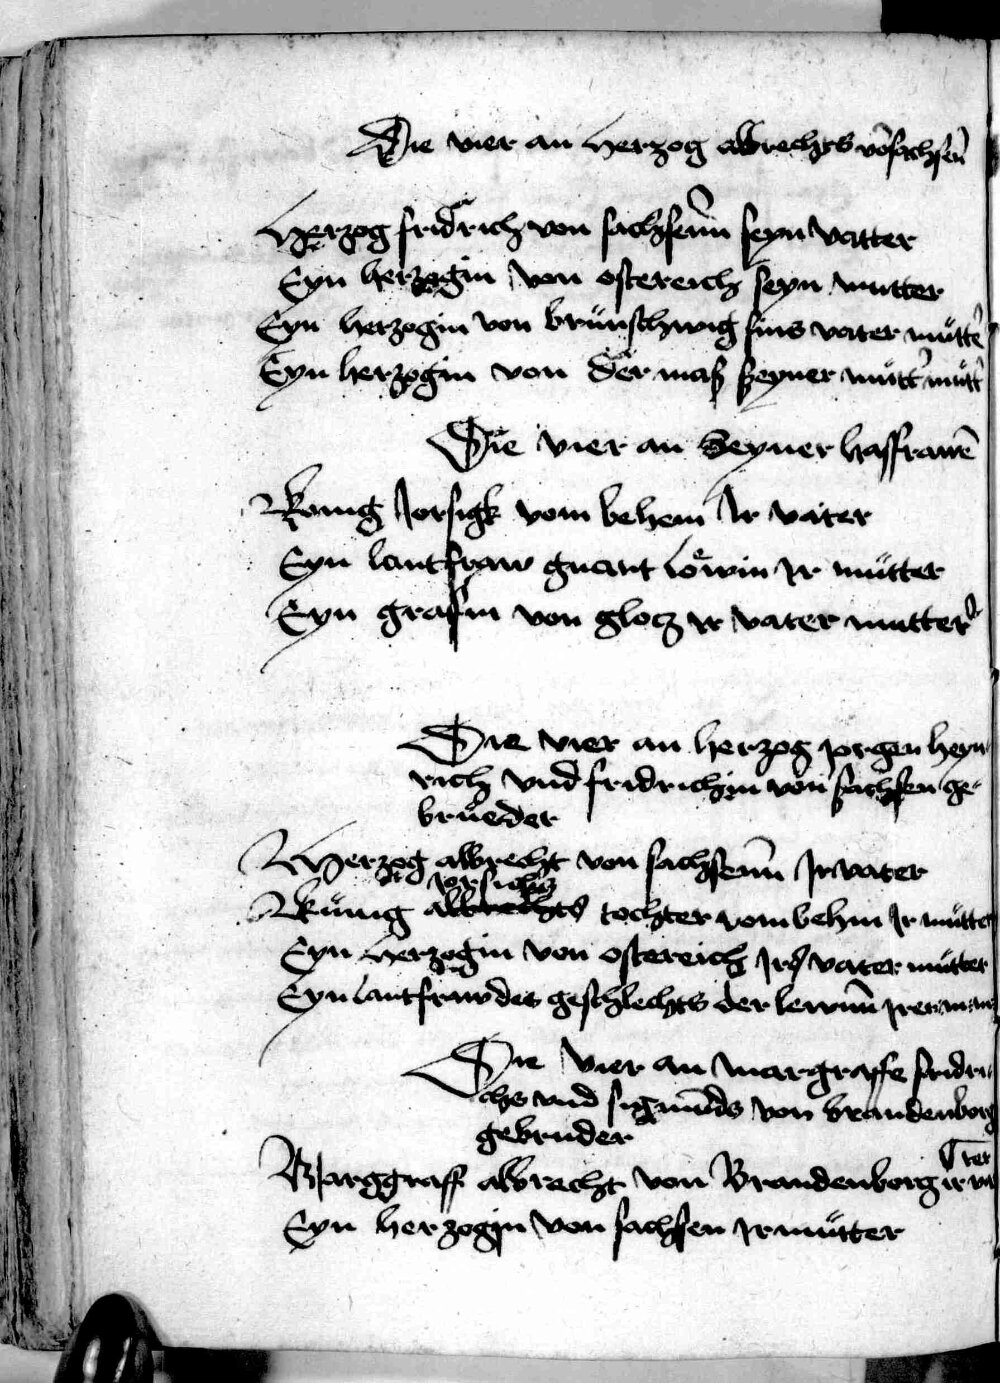 Die vier an Herzog albrechts vō sachsen̄
Herzog fridrich von sachsenn̄ seyn vatter
Eyn herzogin von ostereich seyn mutter
Eyn herzogin von brünschwig sins vater mütte
Eyn herzogin von der maß seyner mütt mütt
Die vier an Seyner haffrawē
Konig Jorsigk vom behem Jr vater
Eyn lantfraw gnant Löwin Jr mütter
Eyn grafin von glocz Jr vater mutter
Die vier an herzog jorgen heyn
rich vnd fridrichin von sachsen ge-
brüeder
Herzog albrecht von sachsenn̄ Jr vater
jorsickz
Küning albrechts tochter vom behm Jr mütter
Eyn Herzogin von ostereich Jrs vater mütter
Eyn lantfraw des geschlechts der lewinn̄ Jrer
Die vier an margraffe fridri
chs vnd sigmūds von brandenborg
gebruder
ter
Marggraff albrecht von Brandenborg ir va
Eyn herzogin von sachsen Jr mütter